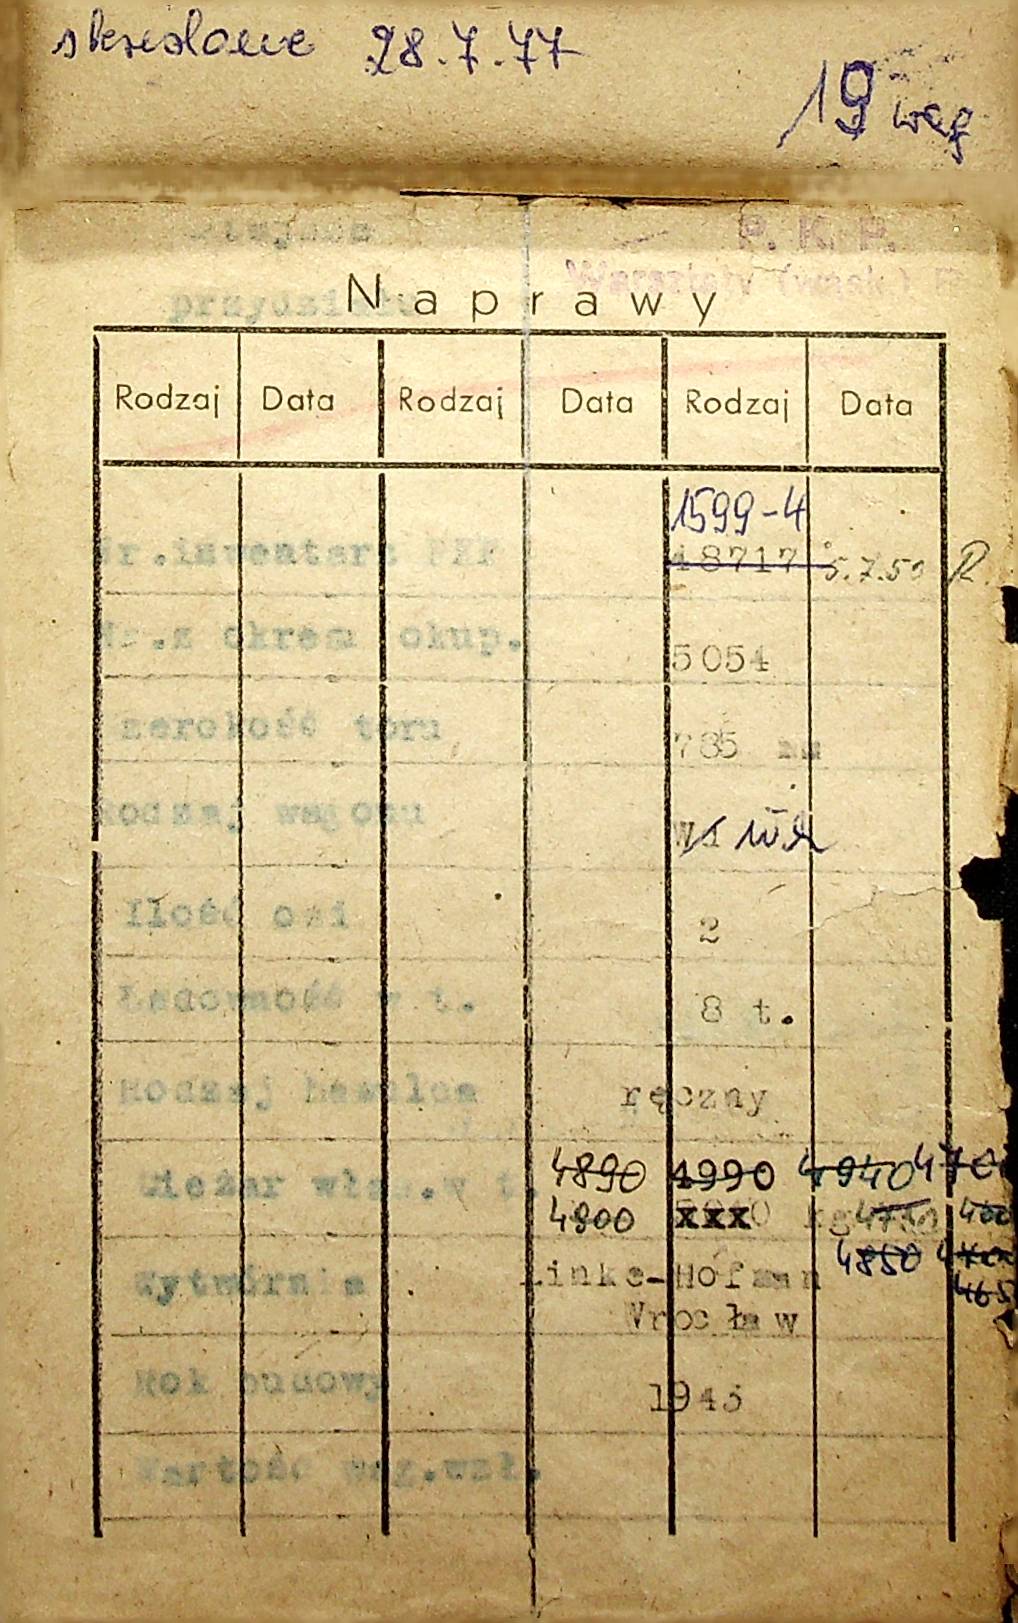 skreślone 28.7.77
19 wąs
P. K. P.
Warsztaty (wąsk.)
przydziału
Naprawy
Rodzaj Data Rodzaj Data Rodzaj Data
1599-4
Nr.inwentarz PKP 48717 5.7.50 R
Nr.z okresu okup. 5054
Szerokość toru 785 mm
Rodzaj wagonu
Ilość osi 2
Ładowność w t. 8 t.
Rodzaj hamulca ręczny
Ciężar włas.w t. 4890 4990 4940
4800 xxx0 kg
4850
Wytwórnia Linke-Hofman
Wrocław
Rok budowy 1943
Wartość wag.wzł.